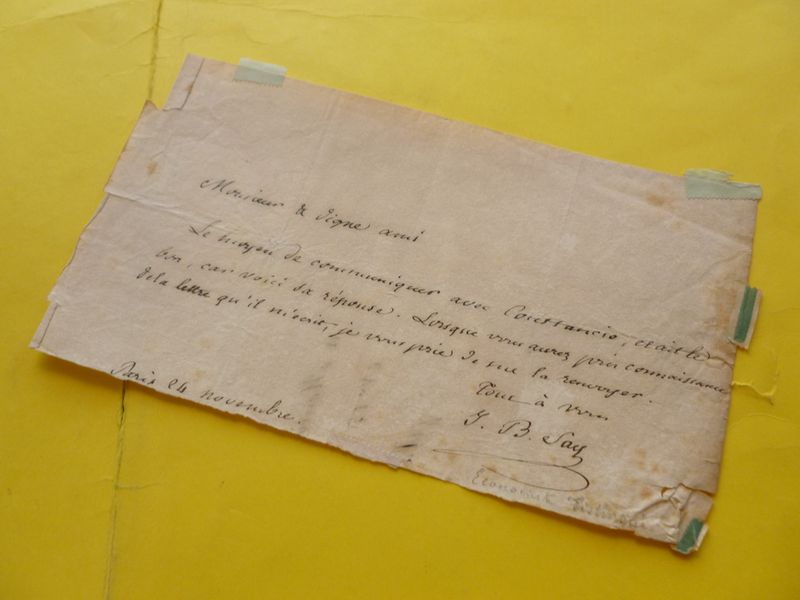 Monsieur & digne ami
Le moyen de communiquer avec Constancio, était le
bon, car voici sa réponse. Lorsque vous aurez pris connaissance
de la lettre qu'il m'écrit, je vous prie de me la renvoyer.
Tout à vous
J. B. Say
Paris 24 novembre.
Economiste